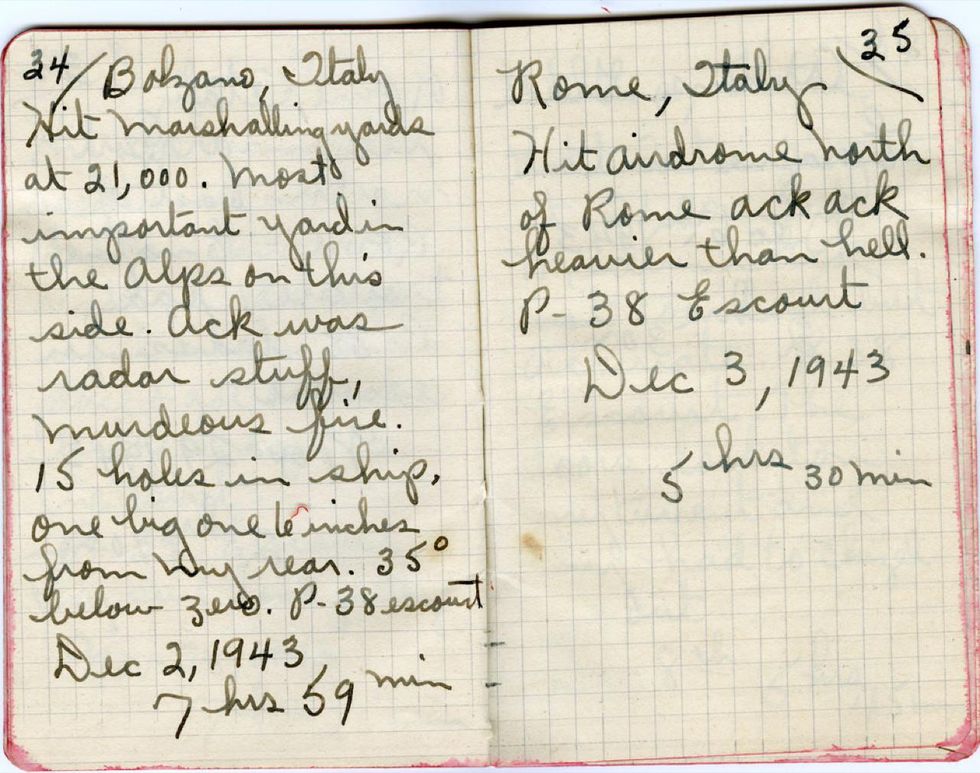 34/ Bolzano, Italy
Hit Marshalling yards
at 21,000. Most
important yard in
the Alps on this
side. Ack was
radar stuff,
murdeous fire.
15 holes in ship,
one big one 6 inches
from my rear. 35°
below zero. P-38 escourt
Dec 2, 1943,
7 hrs 59 min
35
Rome, Italy
Hit airdrome north
of Rome ack ack
heavier than hell.
P-38 Escourt
Dec 3, 1943
5 hrs 30 min